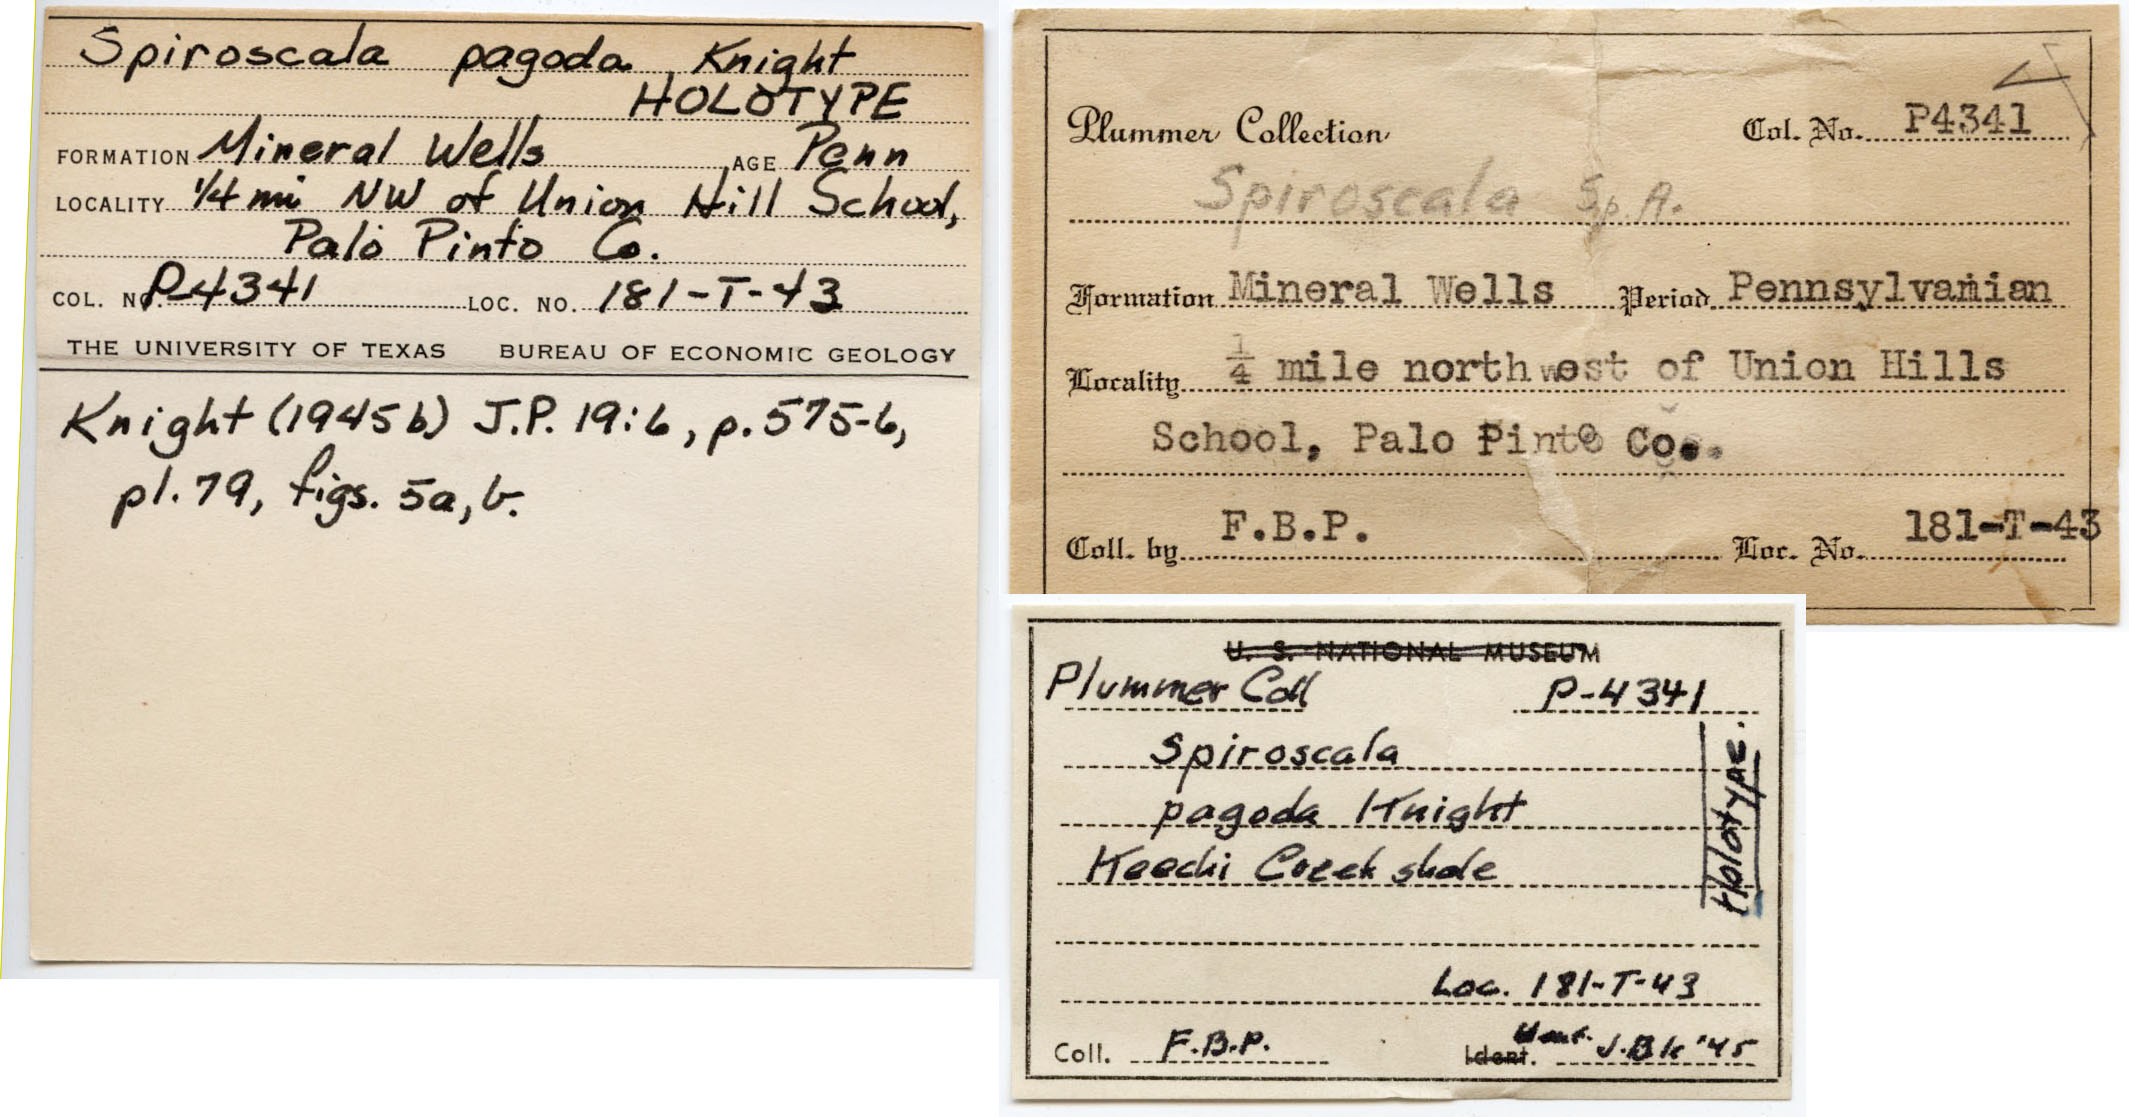 Spiroscala pagoda, Knight
HOLOTYPE
FORMATION Mineral Wells AGE Penn
LOCALITY 1/4 mi NW of Union Hill School,
Palo Pinto Co.
COL. NO. P4341 LOC. NO. 181-T-43
THE UNIVERSITY OF TEXAS BUREAU OF ECONOMIC GEOLOGY
Knight (1945b) J.P. 19:6, p. 575-6,
pl. 79, figs. 5a, b.
Plummer Collection Col. No. P4341
Spiroscala Sp. A.
Formation Mineral Wells Period Pennsylvanian
Locality 1/4 mile northwest of Union Hills
School, Palo Pinto Co.
Coll. by F.B.P. Loc. No. 181-T-43
U. S. NATIONAL MUSEUM
Plummer Coll P-4341
Spiroscala
pagoda Knight
Keechi Creek shale
Holotype.
Loc. 181-T-43
Coll. F.B.P. Ident. J.BK '45